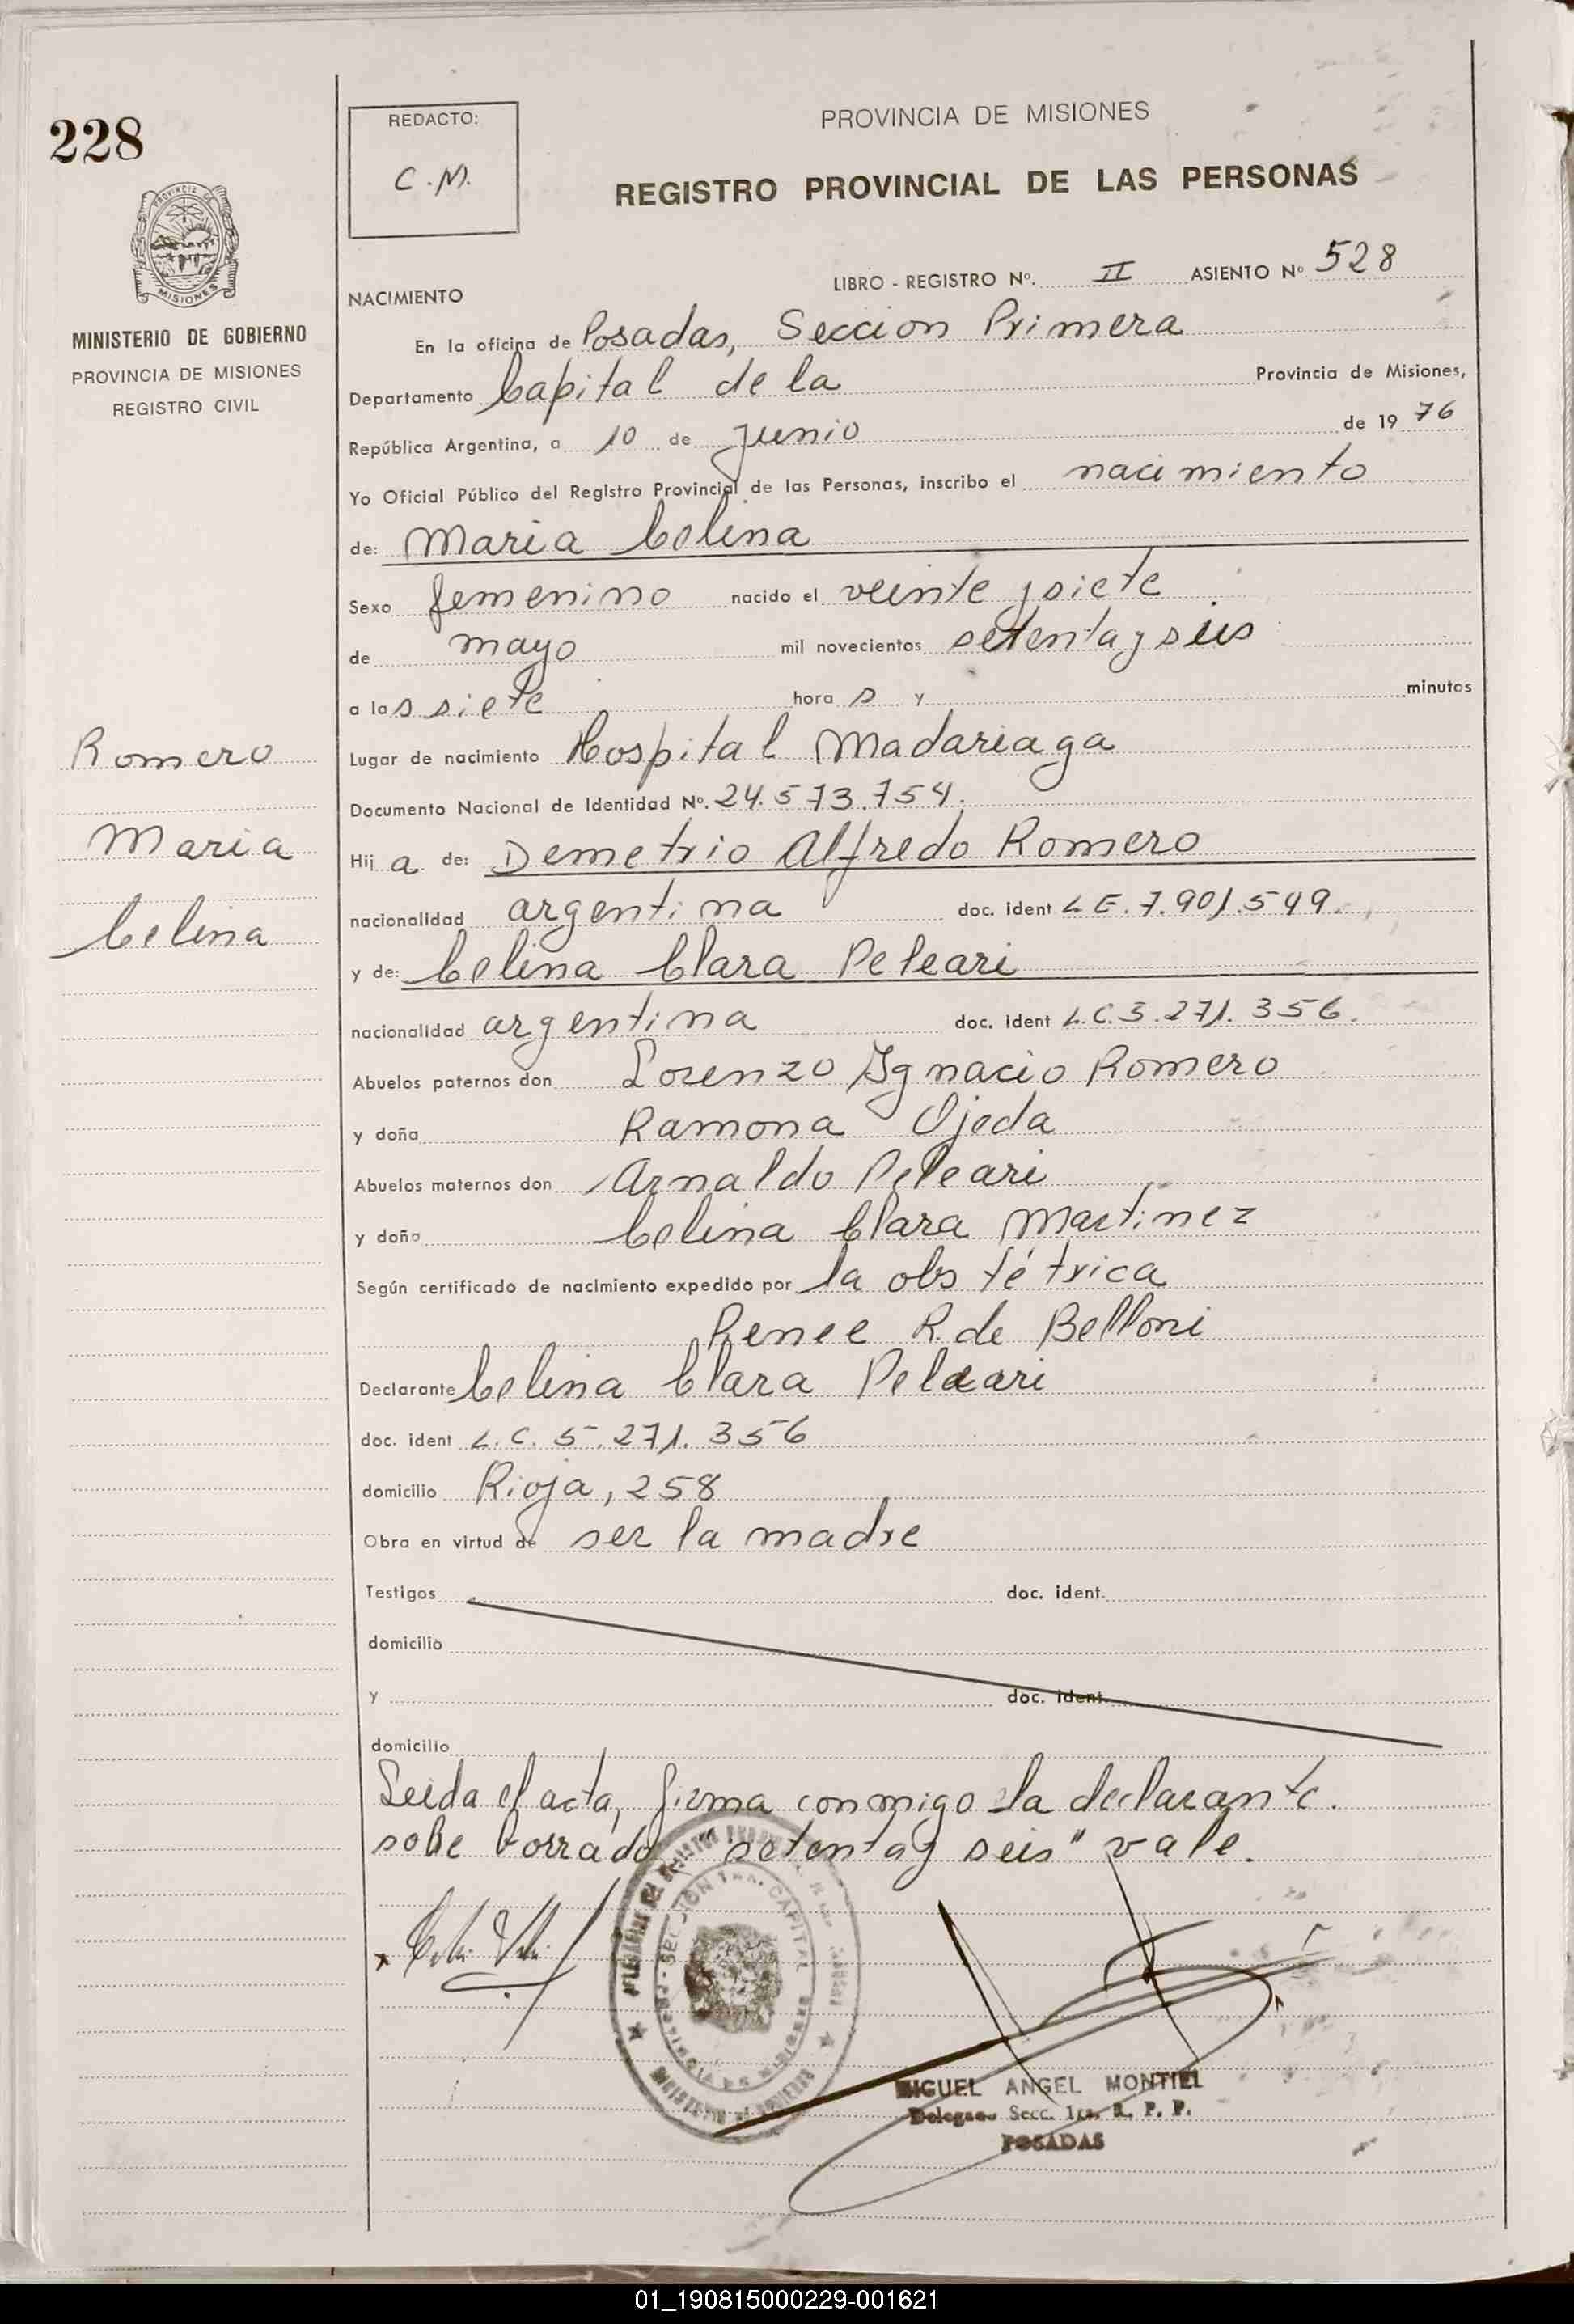 228
PROVINCIA DE
MISIONES
MINISTERIO DE GOBIERNO
PROVINCIA DE MISIONES
REGISTRO CIVIL
Romero
Maria
Celina
REDACTO:
C.M.
PROVINCIA DE MISIONES
REGISTRO PROVINCIAL DE LAS PERSONAS
LIBRO - REGISTRO Nº. II ASIENTO Nº 528
NACIMIENTO
En la oficina de Posadas, Seccion Primera
Departamento Capital de la Provincia de Misiones,
República Argentina, a 10 de Junio de 19 76
Yo Oficial Público del Registro Provincial de las Personas, inscribo el nacimiento
de: Maria Celina
Sexo femenino nacido el veinte y siete
de mayo mil novecientos setenta y seis
a las siete hora s y minutos
Lugar de nacimiento Hospital Madariaga
Documento Nacional de Identidad Nº. 24.573.754.
Hij a de: Demetrio Alfredo Romero
nacionalidad argentina doc. ident L E. 7.901.549.
y de: Celina Clara Peleari
nacionalidad argentina doc. ident L.C.5.271.356.
Abuelos paternos don Lorenzo Ygnacio Romero
y doña Ramona Ojeda
Abuelos maternos don Arnaldo Peleari
y doña Celina Clara Martinez
Según certificado de nacimiento expedido por la obstétrica
Renee R. de Belloni
Declarante Celina Clara Peleari
doc. ident L.C. 5.271.356
domicilio Rioja, 258
Obra en virtud de ser la madre
Testigos doc. ident.
domicilio
y doc. ident.
domicilio
Leida el acta, firma conmigo la declarante.
sobe borrado "setenta y seis" vale.
MIGUEL ANGEL MONTIEL
Delegado Secc. 1ra. R. P. P.
POSADAS
01_190815000229-001621